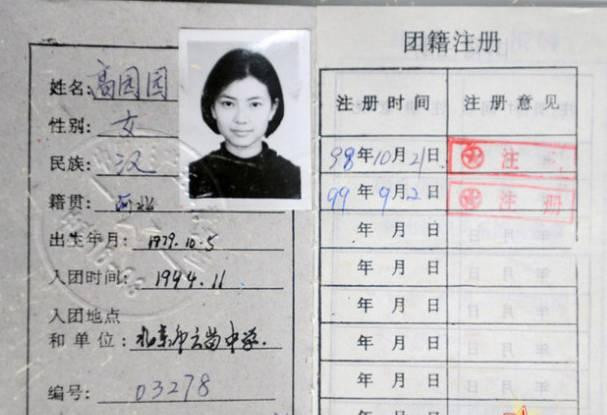 姓名:高圆圆
性别:女
民族:汉
籍贯:河北
出生年月:1979.10.5
入团时间:1994.11
入团地点
和单位:北京市云岗中学.
编号:03278
团籍注册
注册时间 注册意见
98年10月21日 注
99年9月2日 注册
年 月 日
年 月 日
年 月 日
年 月 日
年 月 日
年 月 日